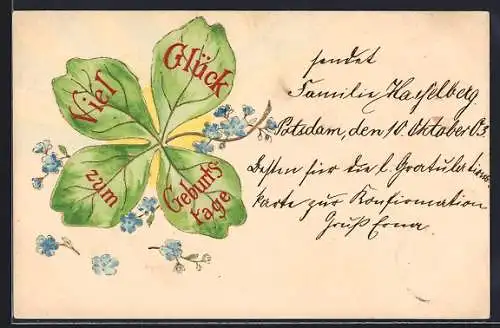 Viel
Glück
zum
Geburts
tage
sendet
Familie Haßelberg
Potsdam, den 10. Oktober 03
Besten für die l. Gratulations
karte zur Konfirmation
Gruß Erna.